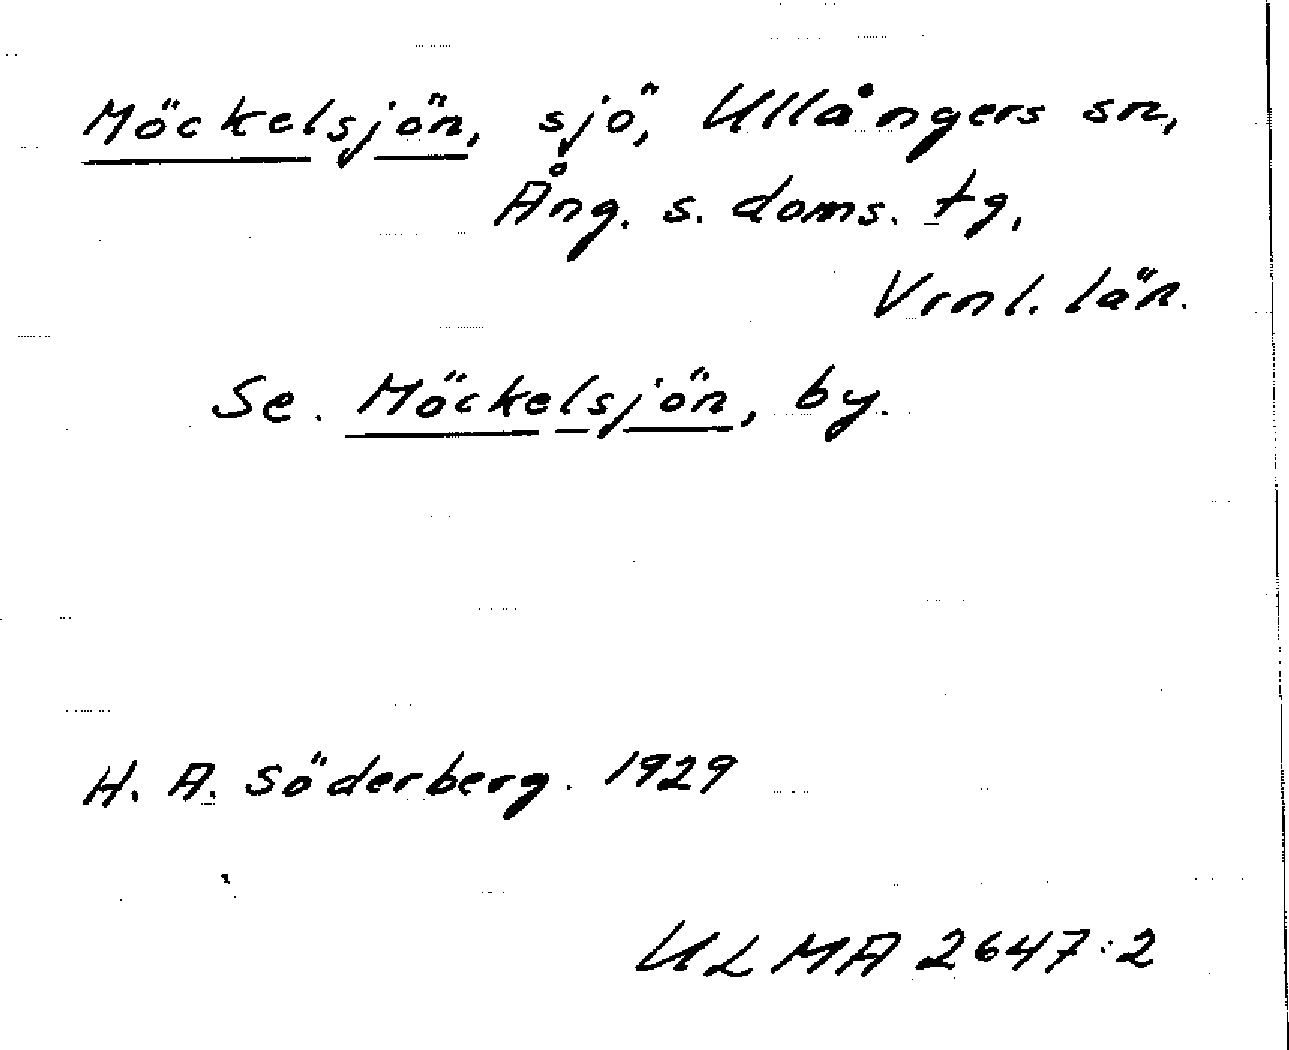 Möckelsjön, sjö, Ullångers sn,
Ång. s. doms. tg,
Vrnl. län.
Se. Möckelsjön, by.
H. A. Söderberg. 1929
ULMA 2647:2